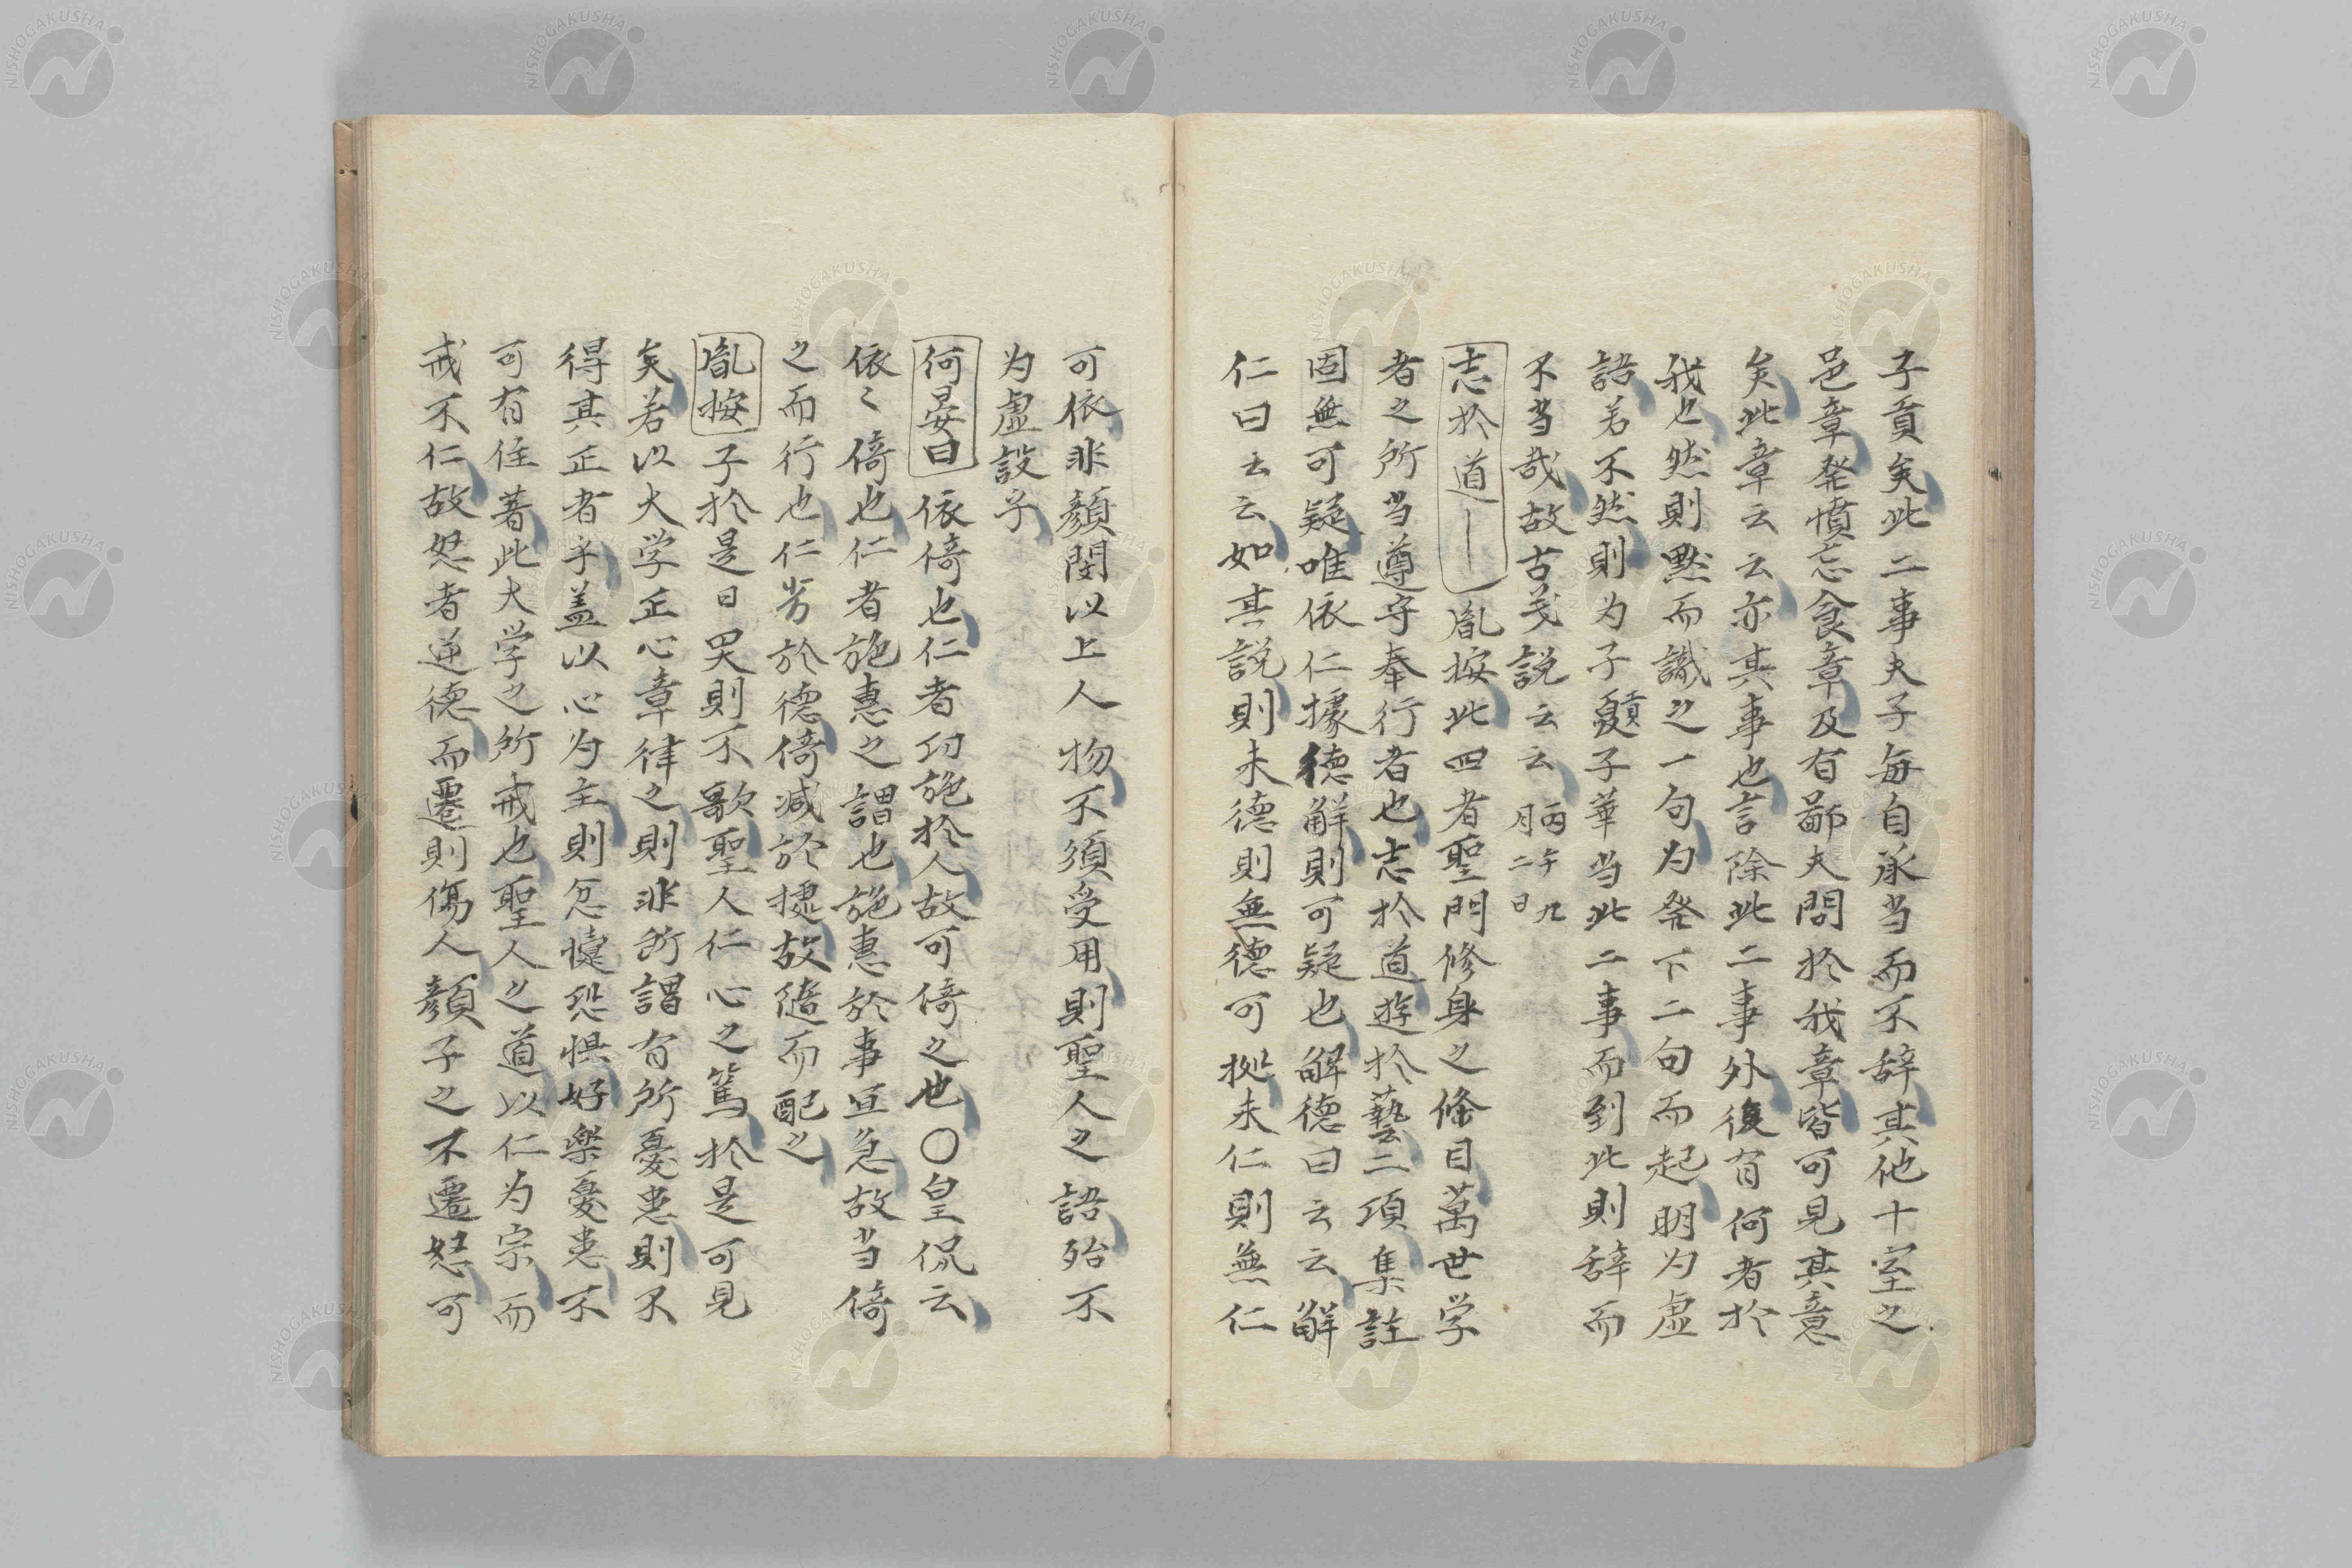 子貢矣此二事夫子毎自承当而不辞其他十室之
邑章発憤忘食章及有鄙夫問於我章皆可見其意
矣此章云云亦其事也言除此二事外復有何者於
我也然則黙而識之一句为発下二句而起明为虚
語若不然則为子貢子華当此二事而到此則辞而
不当哉故古義説云云 丙午九月二日
志於道｜胤按此四者聖門修身之條目萬世学
者之所当遵守奉行者也志於道遊於藝二項集註
固無可疑唯依仁據徳解則可疑也解徳曰云云解
仁曰云云如其説則未徳則無徳可拠未仁則無仁
可依非顔閔以上人物不須受用則聖人之語殆不
为虚設乎
何晏曰依倚也仁者功施於人故可倚之也〇皇侃云
依〻倚也仁者施惠之謂也施惠於事宜急故当倚
之而行也仁劣於德倚减於據故隨而配之
胤按子於是日哭則不歌聖人仁心之篤於是可見
矣若以大学正心章律之則非所謂有所憂患則不
得其正者乎盖以心为主則忿懥恐惧好楽憂患不
可有住著此大学之所戒也聖人之道以仁为宗而
戒不仁故怒者逆德而遷則傷人顔子之不遷怒可
NISHOGAKUSHA